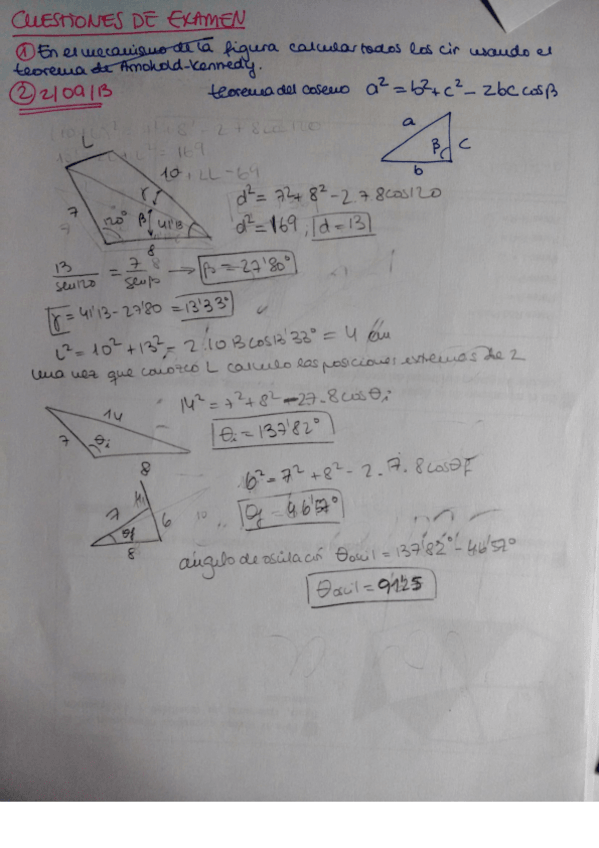 CUESTIONES DE EXAMEN
① En el mecanismo de la figura calcular todos los cir usando el
teorema de Arnohold-Kennedy.
② 2/09/13 teorema del coseno a² = b² + c² - 2bc cosβ
a
β c
b
L
10
7 120° β γ 41'13
8
d² = 7² + 8² - 2 7 8 cos120
d² = 169, d = 13
13/sen120 = 7/senβ → β = 27'80°
γ = 41'13 - 27'80 = 13'33°
L² = 10² + 13² = 2 10 13 cos13'33° = 4 cm
una vez que conozco L calculo las posiciones extremas de 2
14
7 θi
8
14² = 7² + 8² - 2 7 · 8 cosθi
θi = 137'82°
7 6
θf
8
6² = 7² + 8² - 2 · 7 · 8 cosθf
θf = 46'57°
ángulo de oscilación θoscil = 137'82° - 46'57°
θoscil = 91'25